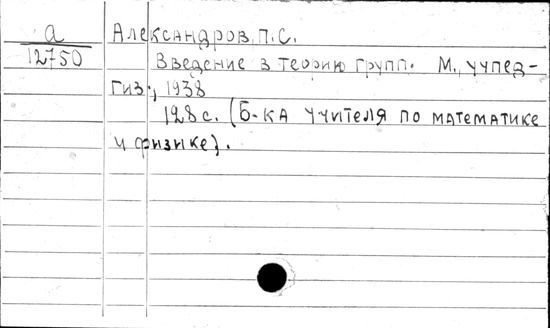 а Александров, П.С.
12750 Введение в теорию групп. М., учпед-
гиз., 1938
128 с. (Б-ка учителя по математике
и физике).